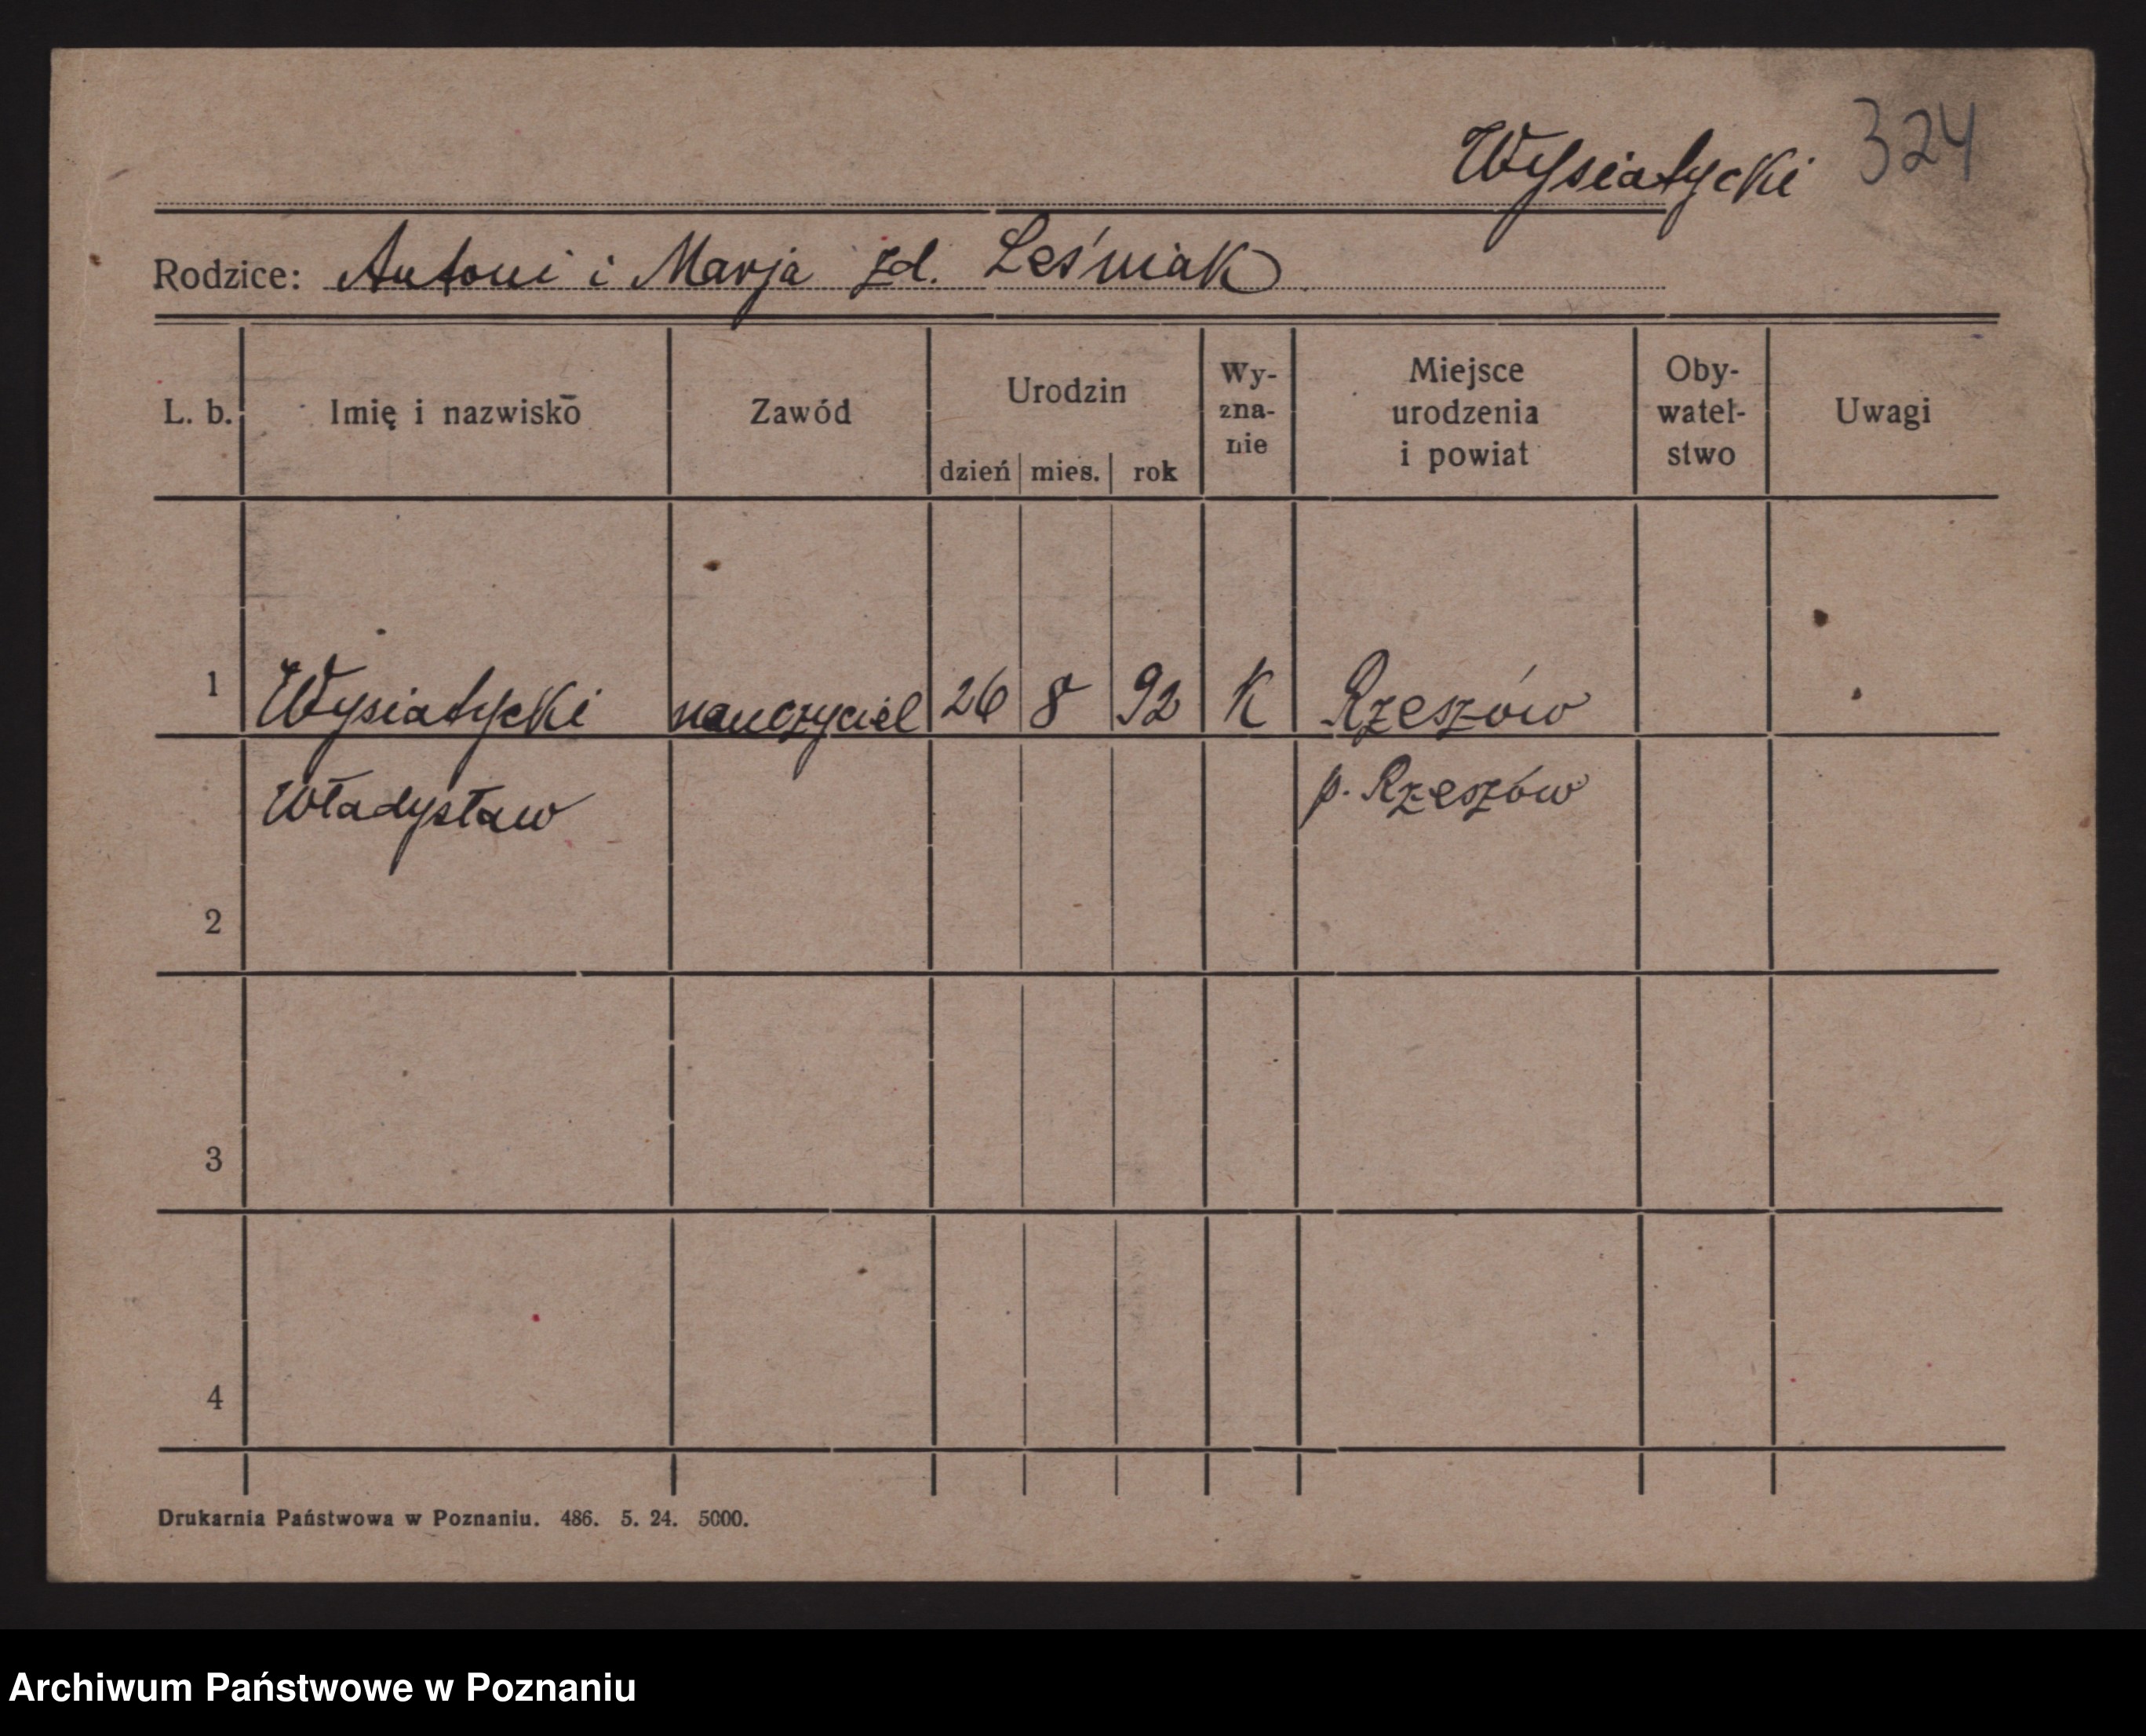 Wysiatycki 324
Rodzice: Antoni i Marja zd. Leśniak
L. b. Imię i nazwisko Zawód Urodzin dzień mies. rok Wy-zna-nie Miejsce urodzenia i powiat Oby-watel-stwo Uwagi
1 Wysiatycki nauczyciel 26 8 92 K Rzeszów
Władysław p. Rzeszów
2
3
4
Drukarnia Państwowa w Poznaniu. 486. 5. 24. 5000.
Archiwum Państwowe w Poznaniu